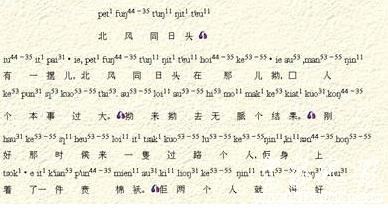 pet¹ fuŋ⁴⁴⁻³⁵ tʻuŋ¹¹ ŋit¹ tʻeu¹¹
北 风 同 日 头
iu⁴⁴⁻³⁵ it¹ pai³¹·ie, pet¹ fuŋ⁴⁴⁻³⁵ tʻuŋ¹¹ ŋit¹ tʻeu¹¹ hoi⁴⁴ ke⁵³⁻⁵⁵·ie au⁵³, man⁵³⁻⁵⁵ ŋin¹¹
有 一 摆 儿, 北 风 同 日 头 在 那 儿 拗, 口 人
ke⁵³ pun³¹ sɿ⁵³ kuo⁵³⁻⁵⁵ tai⁵³. au⁵³ loi¹¹ au⁵³ hi⁵³ mo¹¹ mak¹ ke⁵³ kiat¹ kuo³¹ koŋ⁴⁴⁻³⁵
个 本 事 过 大。拗 来 拗 去 无 脉 个 结 果。 刚
hau³¹ ke⁵³⁻⁵⁵ sɿ¹¹ heu⁵³⁻⁵⁵ loi¹¹ it¹ tsak¹ kuo⁵³⁻⁵⁵ lu⁵³⁻⁵⁵ ke⁵³⁻⁵⁵ ŋin¹¹, ki¹¹ hoŋ⁵³⁻⁵⁵
好 那 时 候 来 一 隻 过 路 个 人, 身 上
tsok¹·e it¹ kʻian⁵³ pʻun⁴⁴⁻³⁵ mien¹¹ au³¹ ki¹¹ lioŋ³¹ ke⁵³⁻⁵⁵ ŋin¹¹
着 了 一 件 棉 袄。佢 两 个 人 就 讲 好